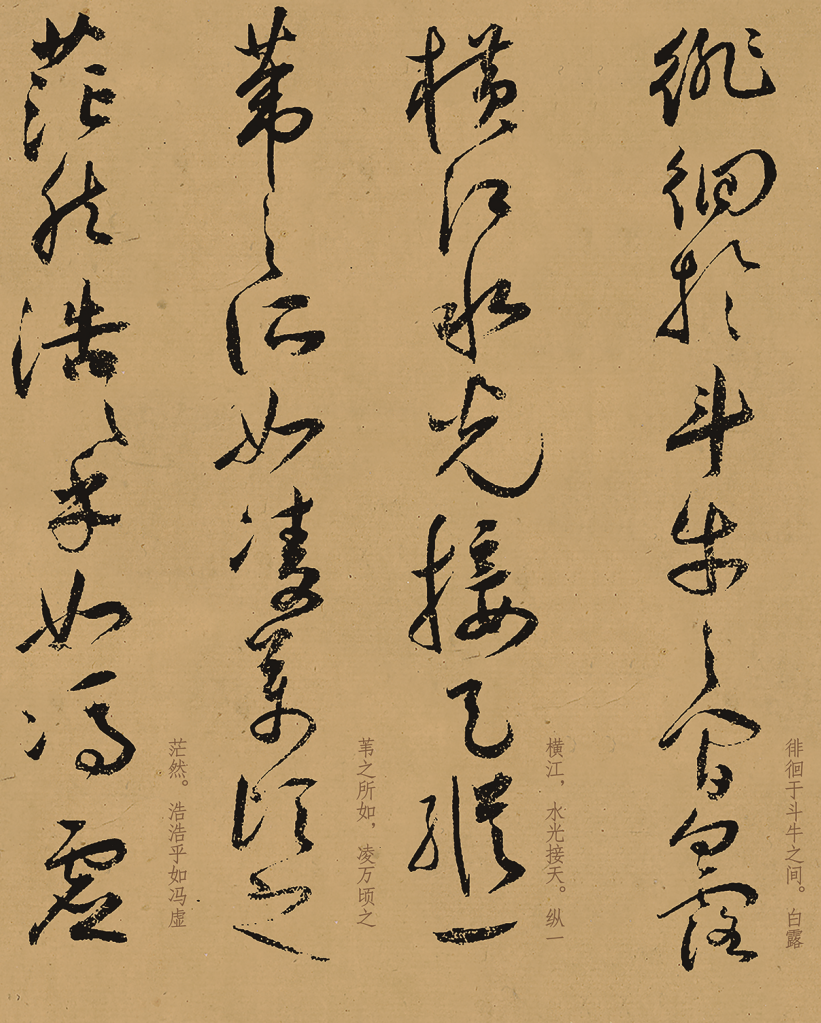 徘徊於斗牛之间白露
徘徊于斗牛之间。白露
横江水光接天纵一
横江，水光接天。纵一
苇之所如凌万顷之
苇之所如，凌万顷之
茫然浩〻乎如冯虚
茫然。浩浩乎如冯虚